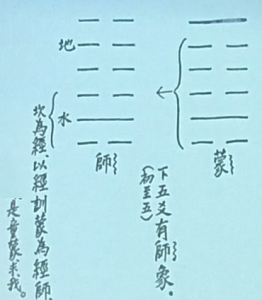 蒙
下五爻有師象。
(初至五)
地
水
師
坎為經、以經訓蒙為經師、
是童蒙求我。